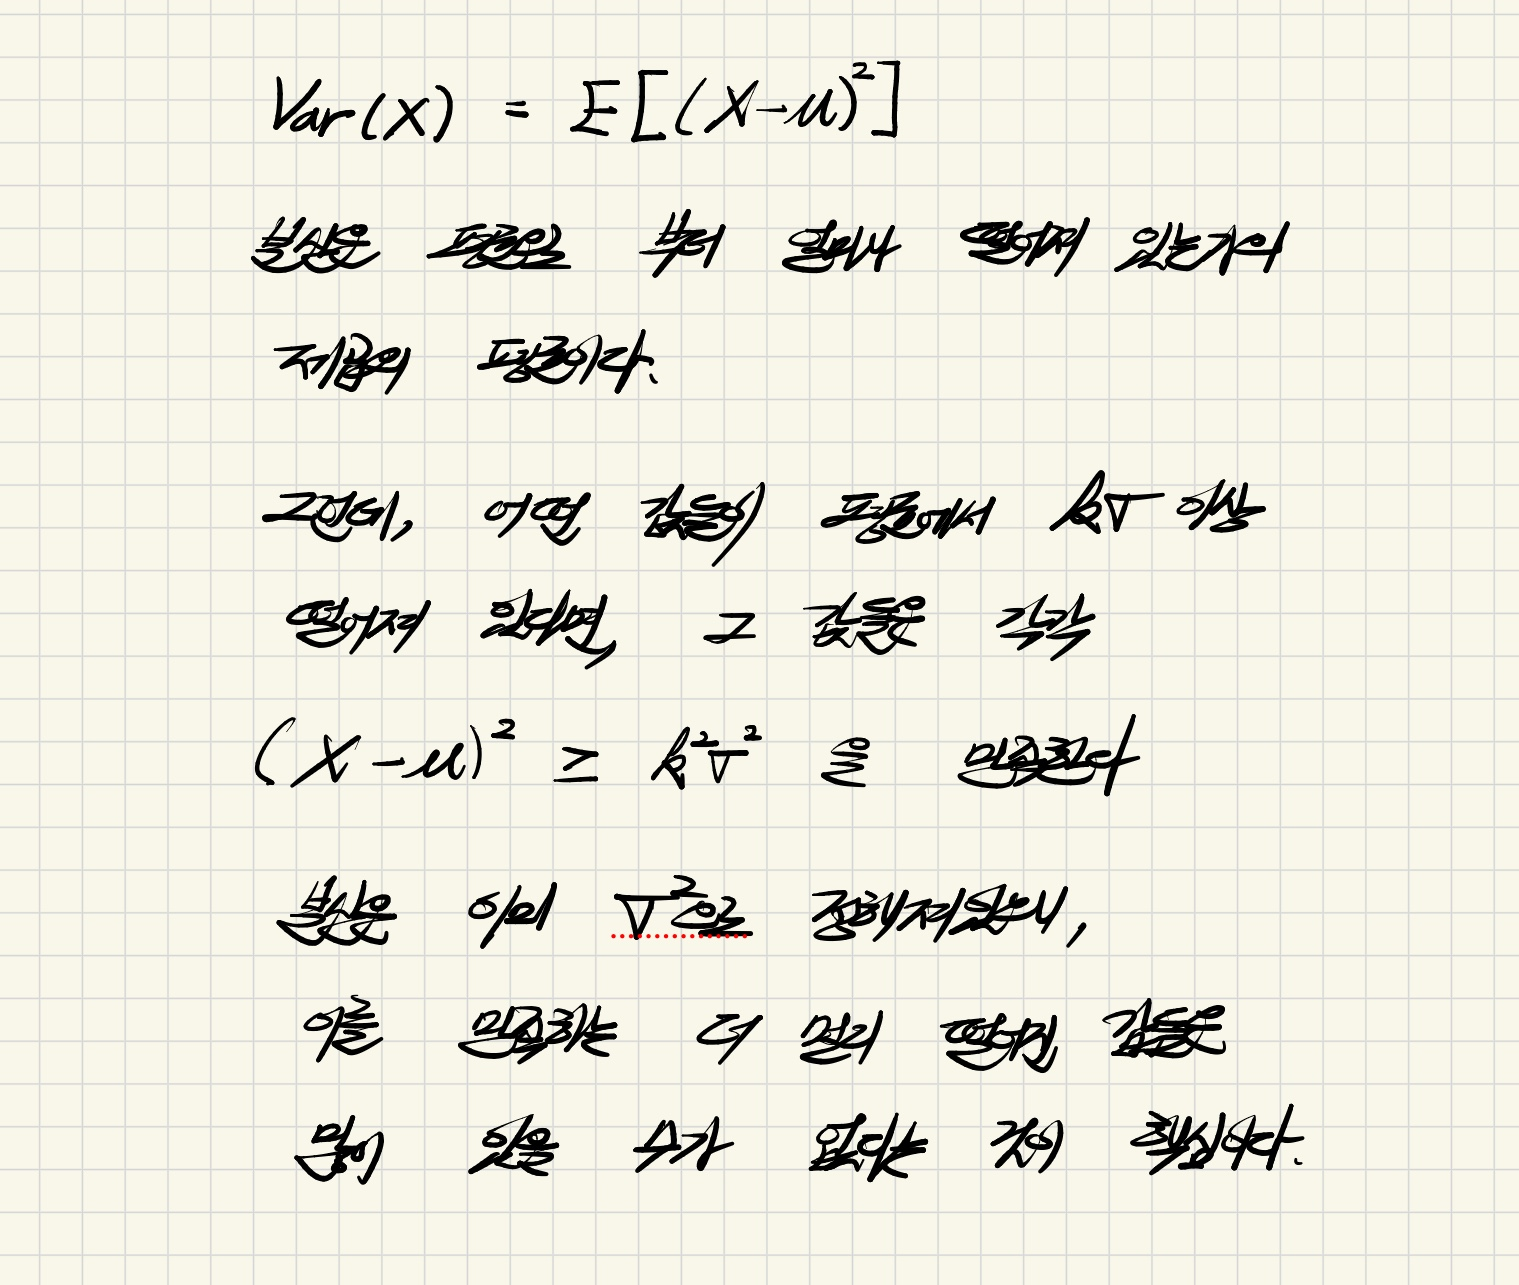 Var(X) = E[(X-μ)²]
분산은 평균으로 부터 얼마나 떨어져 있는가의
제곱의 평균이다.
그런데, 어떤 값들이 평균에서 kσ 이상
떨어져 있다면, 그 값들은 각각
(X-μ)² ≥ k²σ² 을 만족한다
분산은 이미 σ²으로 정해져있으니,
이를 만족하는 더 멀리 떨어진 값들은
많이 있을 수가 없다는 것이 핵심이다.